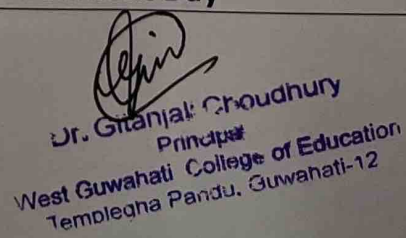 Dr. Gitanjali Choudhury
Principal
West Guwahati College of Education
Templegha Pandu. Guwahati-12